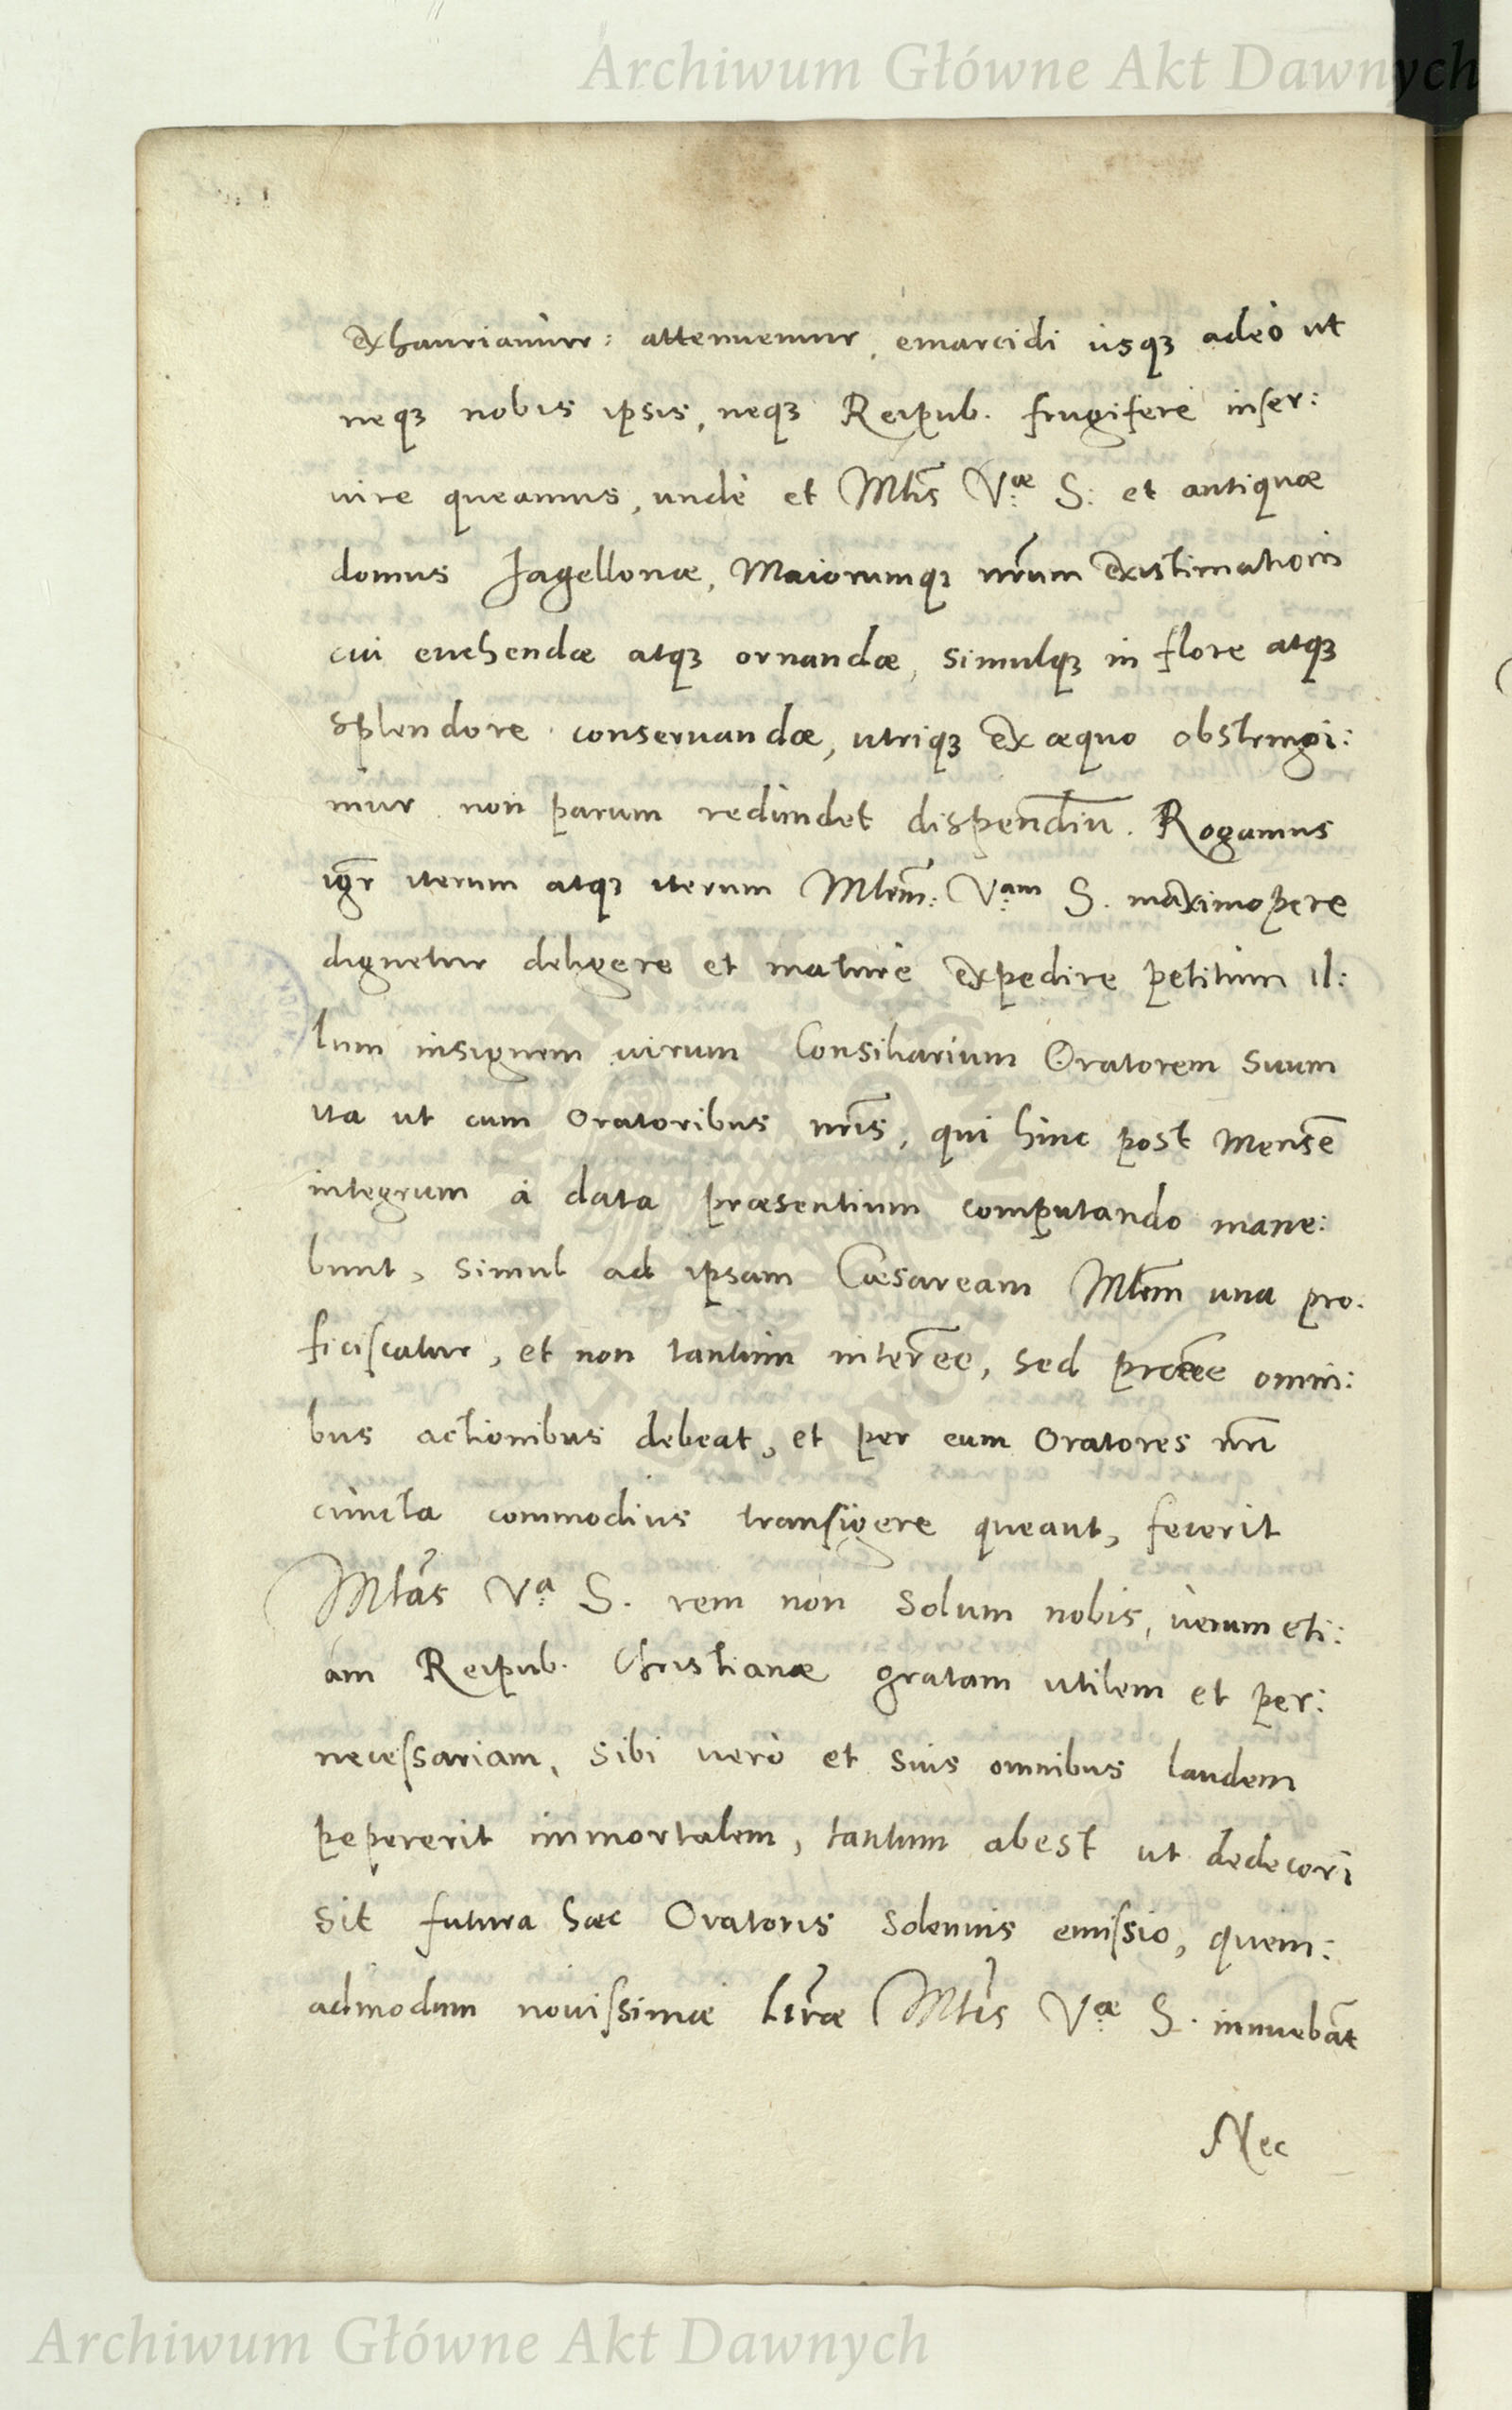 Archiwum Główne Akt Dawnych
exhauriamur: attenuemur, emarcidi usqꝫ adeò ut
neqꝫ nobis ipsis, neqꝫ Reipub. frugifere inser:
uire queamus, undè et Mtis̃ V.ae S: et antiquæ
domus Jagellonæ, Maiorumqꝫ nr̃um existimationi
cui euehendæ atqꝫ ornandæ, simulqꝫ in flore atqꝫ
splendore conseruandæ, utriqꝫ ex æquo obstringi:
mur non parum redundet dispendiũ. Rogamus
igr̃ iterum atqꝫ iterum Mtem̃: V.am S. maximopere
dignetur deligere et maturè expedire petitum il:
lum insignem uirum Consiliarium Oratorem suum
ita ut cum Oratoribus nr̃is, qui hinc post Mensẽ
integrum à data præsentium computando mane:
bunt, simul ad ipsam Cæsaream Mtem̃ una pro.
ficiscatur, et non tantum inter̃ee, sed præ̃ee omni:
bus actionibus debeat, et per eum Oratores nr̃i
cuncta commodius transigere queant, fecerit
Mtãs V.a S. rem non solum nobis, uerum eti:
am Reipub. Christianæ gratam utilem et per:
necessariam, sibi uerò et suis omnibus laudem
pepererit immortalem, tantum abest ut dedecori
sit futura hæc Oratoris solennis emissio, quem:
admodum nouissimæ Lr̃æ Mtis̃ V.ae S. innuebãt
Nec
Archiwum Główne Akt Dawnych